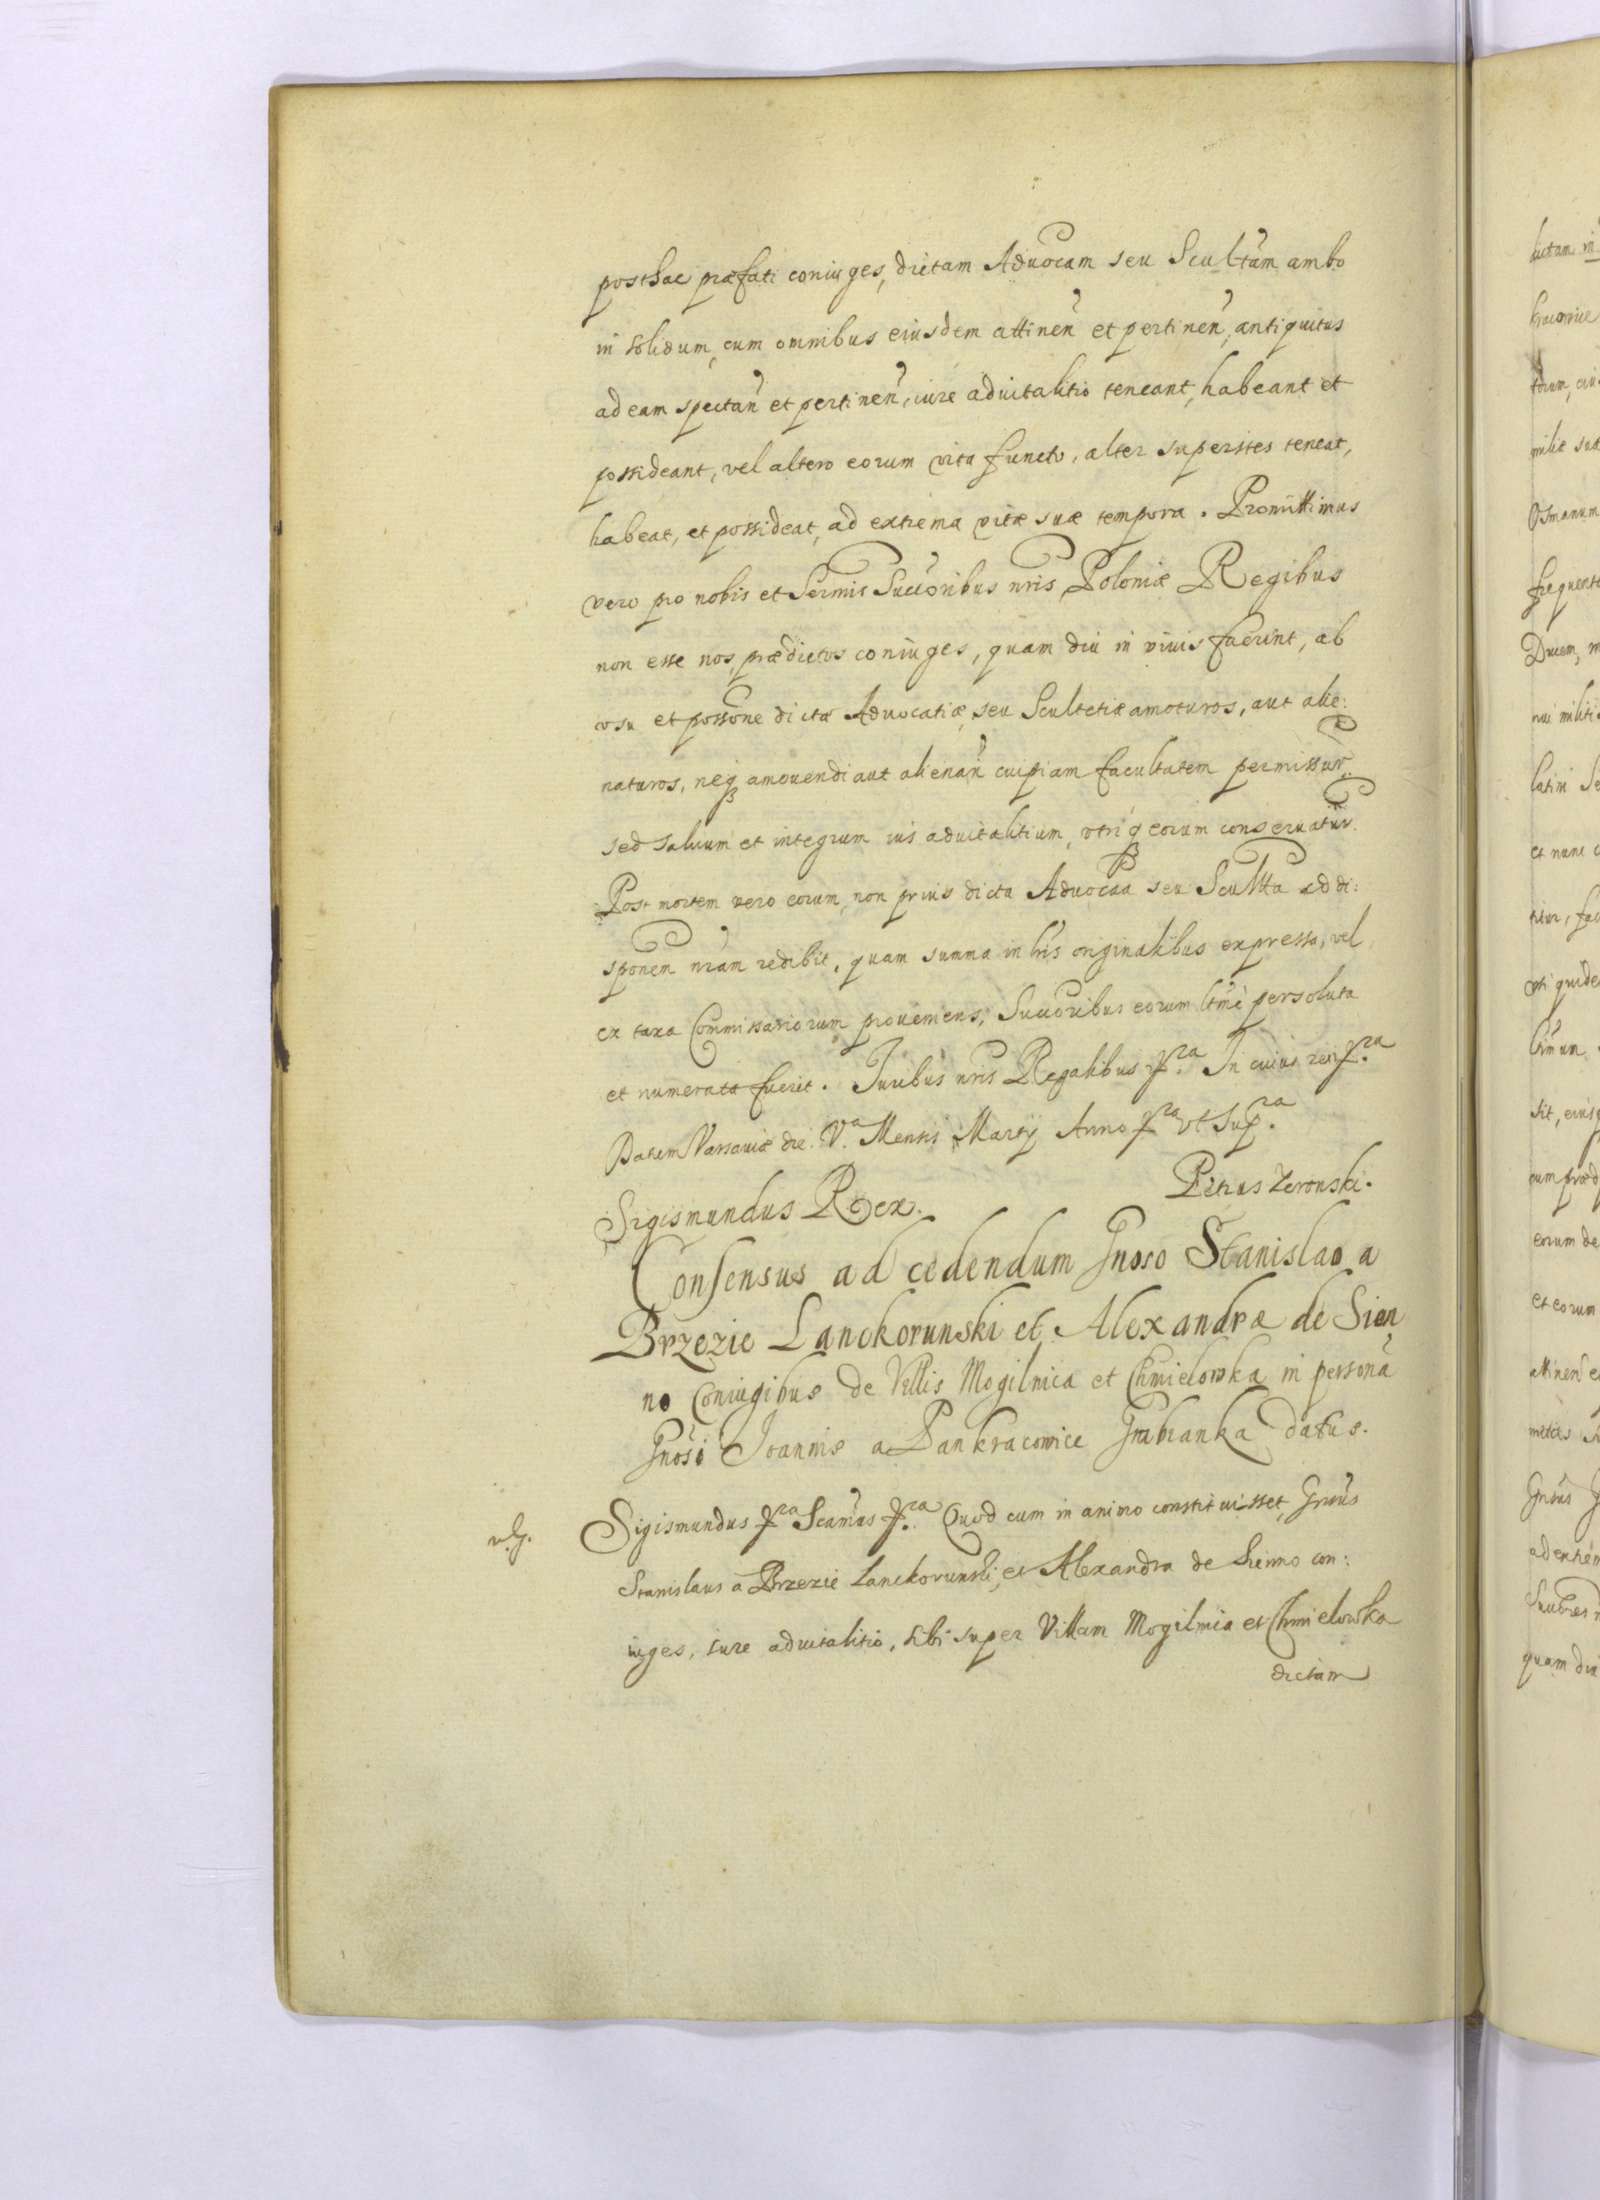 posthac præfati coniuges, dictam Aduocam seu Scultam ambo
in solidum, cum omnibus eiusdem attinen et pertinen, antiquitus
ad eam spectan et pertinen, iure aduitalitio teneant, habeant et
possideant, vel altero eorum vita functo, alter superstes teneat,
habeat, et possideat, ad extrema vitæ suæ tempora. Promittimus
vero pro nobis et Sermis Succoribus nris Poloniæ Regibus
non esse nos, prædictos coniuges, quam diu in viuis fuerint, ab
vsu et possone dictæ Aduocatiæ seu Scultetiæ amoturos, aut alie:
naturos, neq amouendi aut alienan cuipiam facultatem permissur.
sed saluum et integrum ius aduitalitium, vtriq eorum conseruatur.
Post mortem vero eorum, non prius dicta Aduocaa seu Scultta ad di:
sponem nram redibit, quam summa in lris originalibus expressa, vel
ex taxa Commissariorum proueniens, Succoribus eorum ltme persoluta
et numerata fuerit. Iuribus nris Regalibus pra. In cuius rei pra
Datum Varsauiæ die. Va. Mensis Martij Anno pra vt Supra.
Petrus Zeronski.
Sigismundus Rex.
Consensus ad cedendum Gnoso Stanislao a
Brzezie Lanckorunski et Alexandræ de Sien
no Coniugibus de Villis Mogilnica et Chmielowka in persona
Gnosi Joannis a Pankracowice Grabianka datus.
Sigismundus pra Scamus pra. Quod cum in animo constituisset, Gnsus
Stanislaus a Brzezie Lanckorunski, et Alexandra de Sienno con:
iuges, iure aduitalitio, sibi super Villam Mogilnica et Chmielowka
dictam